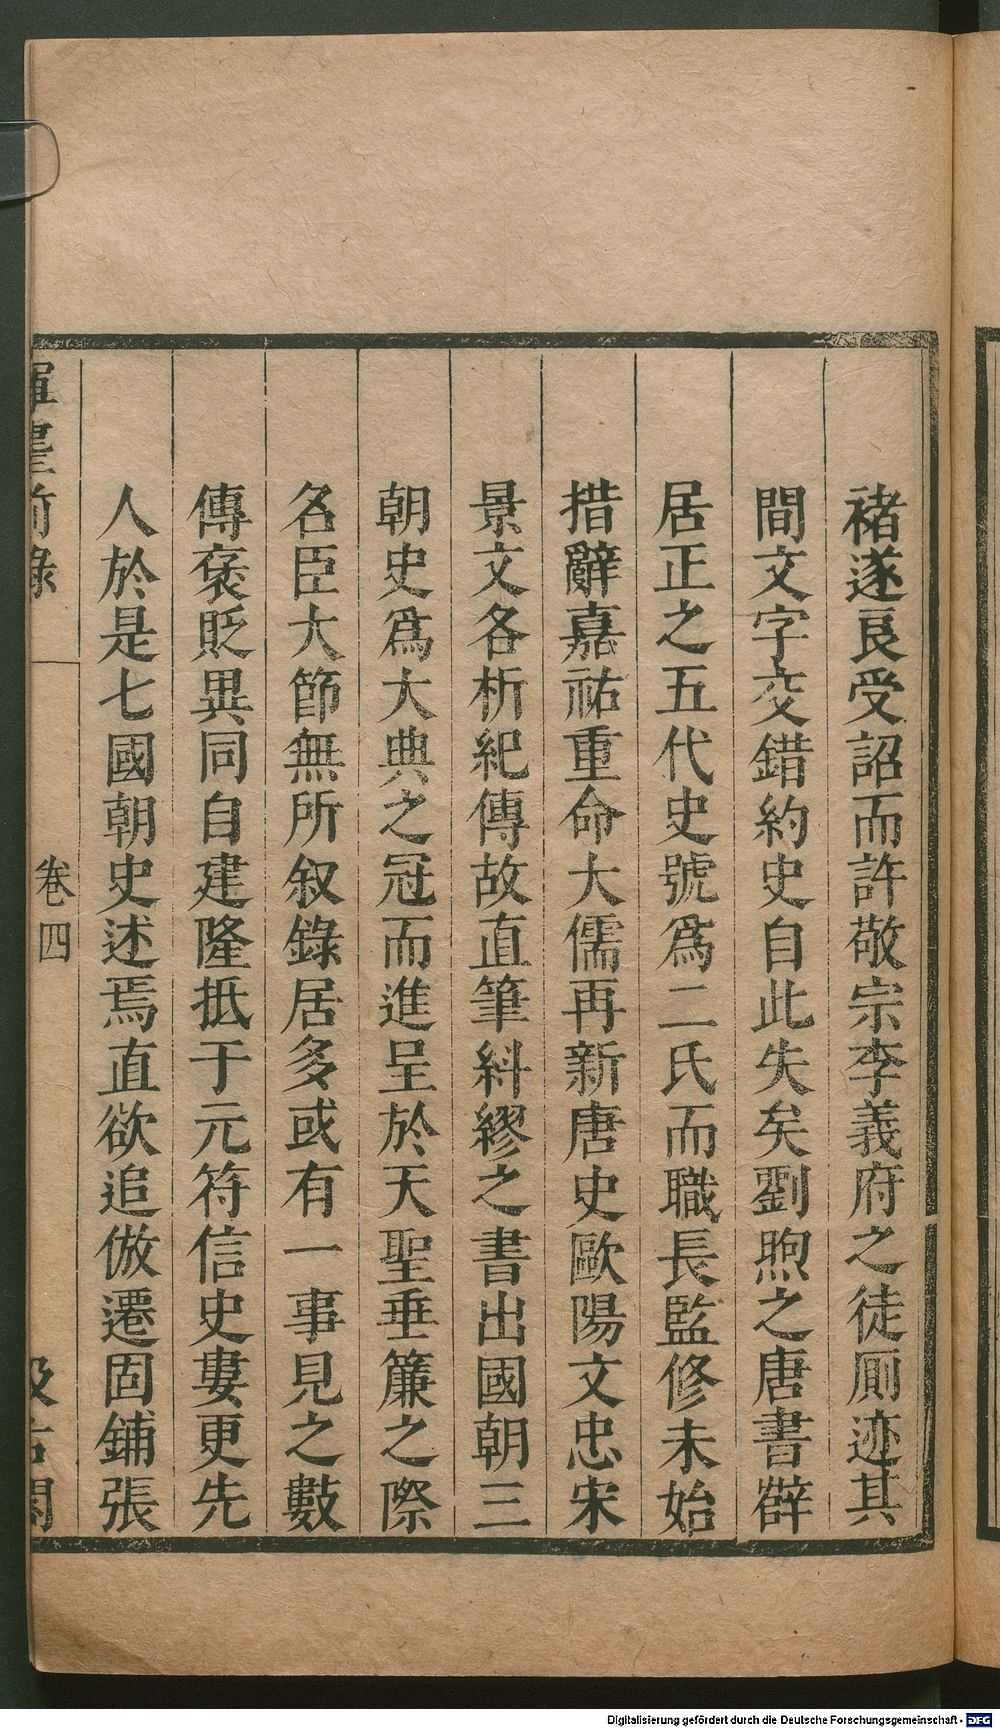 褚遂良受詔而許敬宗李義府之徒厠迹其
間文字交錯約史自此失矣劉煦之唐書薛
居正之五代史號爲二氏而職長監修未始
措辭嘉祐重命大儒再新唐史歐陽文忠宋
景文各析紀傳故直筆糾繆之書出國朝三
朝史爲大典之冠而進呈於天聖垂簾之際
名臣大節無所叙錄居多或有一事見之數
傳褒貶異同自建隆抵于元符信史婁更先
人於是七國朝史述焉直欲追倣遷固鋪張
揮麈前錄
卷四
汲古閣
Digitalisierung gefördert durch die Deutsche Forschungsgemeinschaft - DFG